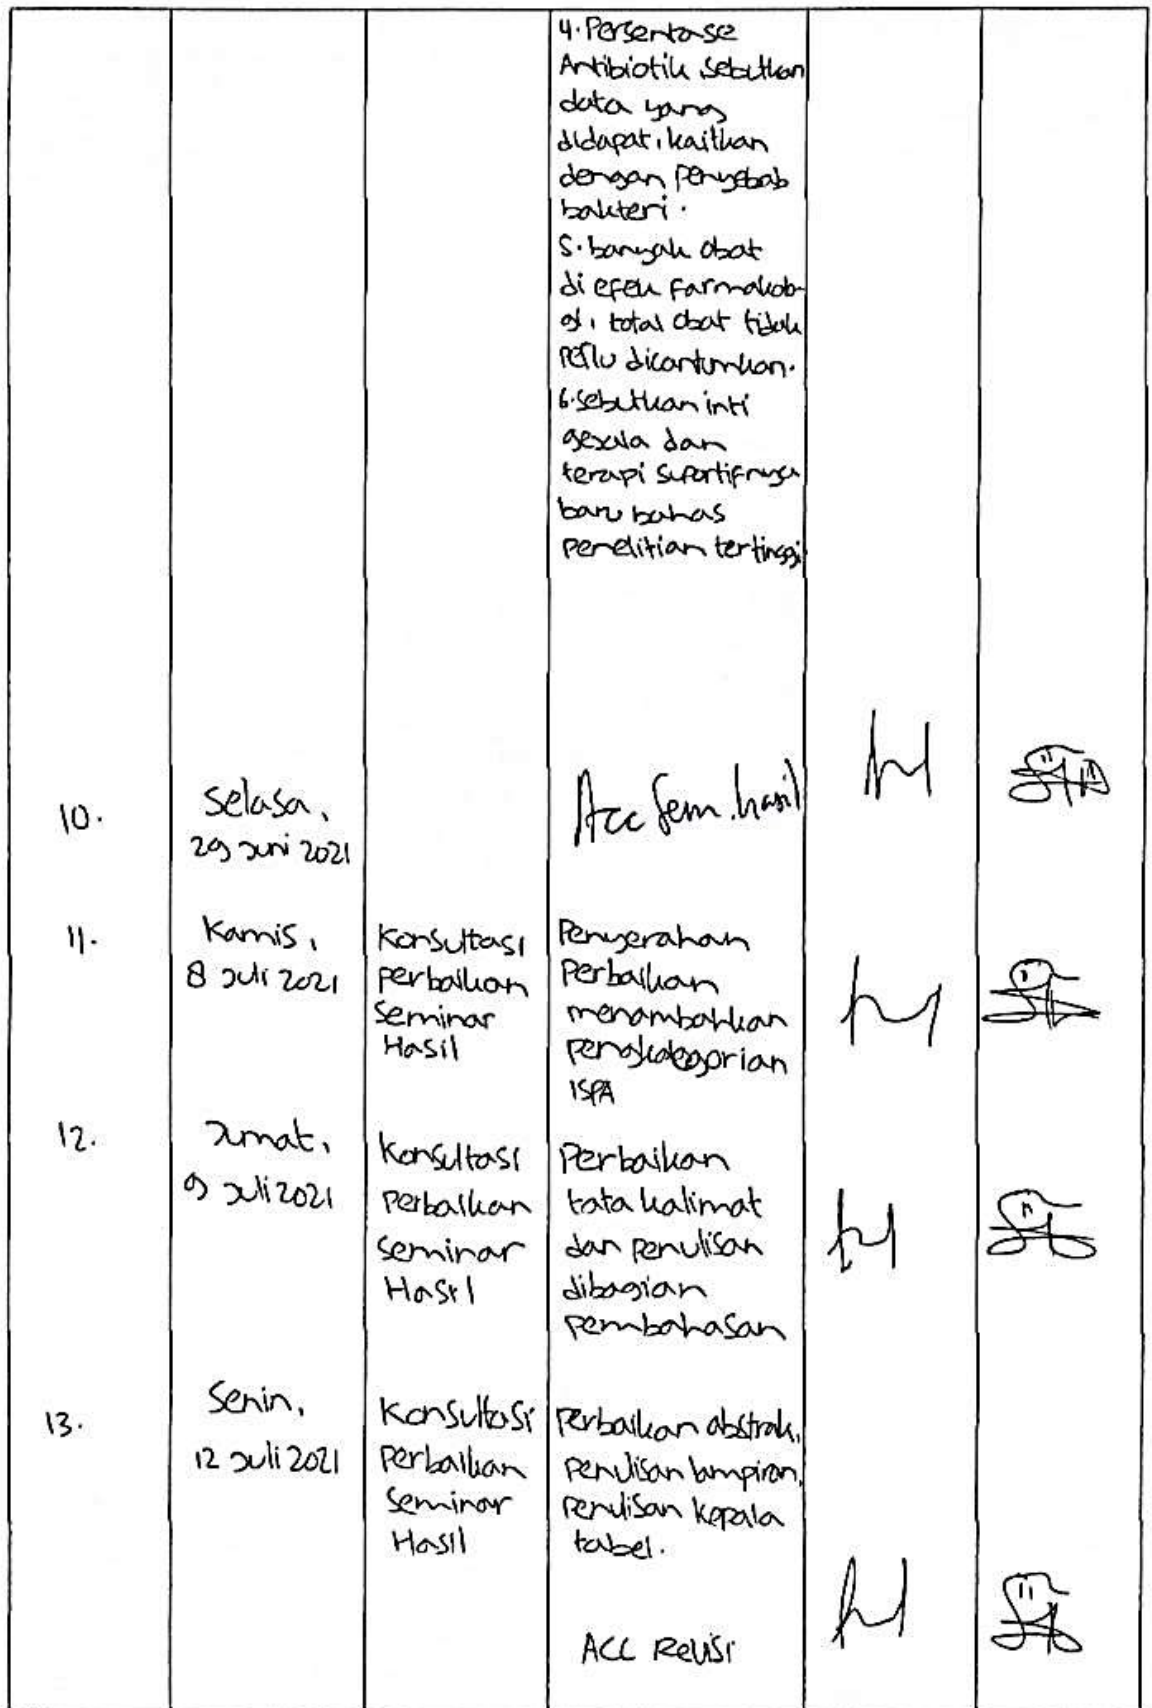 4. Persentase
Antibiotik sebutkan
data yang
didapat, kaitkan
dengan penyebab
bakteri.
5. banyak obat
di efek farmakolo-
gi, total obat tidak
perlu dicantumkan.
6. Sebutkan inti
gejala dan
terapi suportifnya
baru bahas
penelitian tertinggi
10.
Selasa,
29 Juni 2021
Acc Sem. hasil
11.
Kamis,
8 Juli 2021
Konsultasi
perbaikan
Seminar
Hasil
Penyerahan
Perbaikan
menambahkan
pengkategorian
ISPA
12.
Jumat,
9 Juli 2021
Konsultasi
Perbaikan
Seminar
Hasil
Perbaikan
tata kalimat
dan penulisan
dibagian
pembahasan
13.
Senin,
12 Juli 2021
Konsultasi
Perbaikan
Seminar
Hasil
Perbaikan abstrak,
penulisan lampiran,
penulisan kepala
tabel.
ACC Revisi